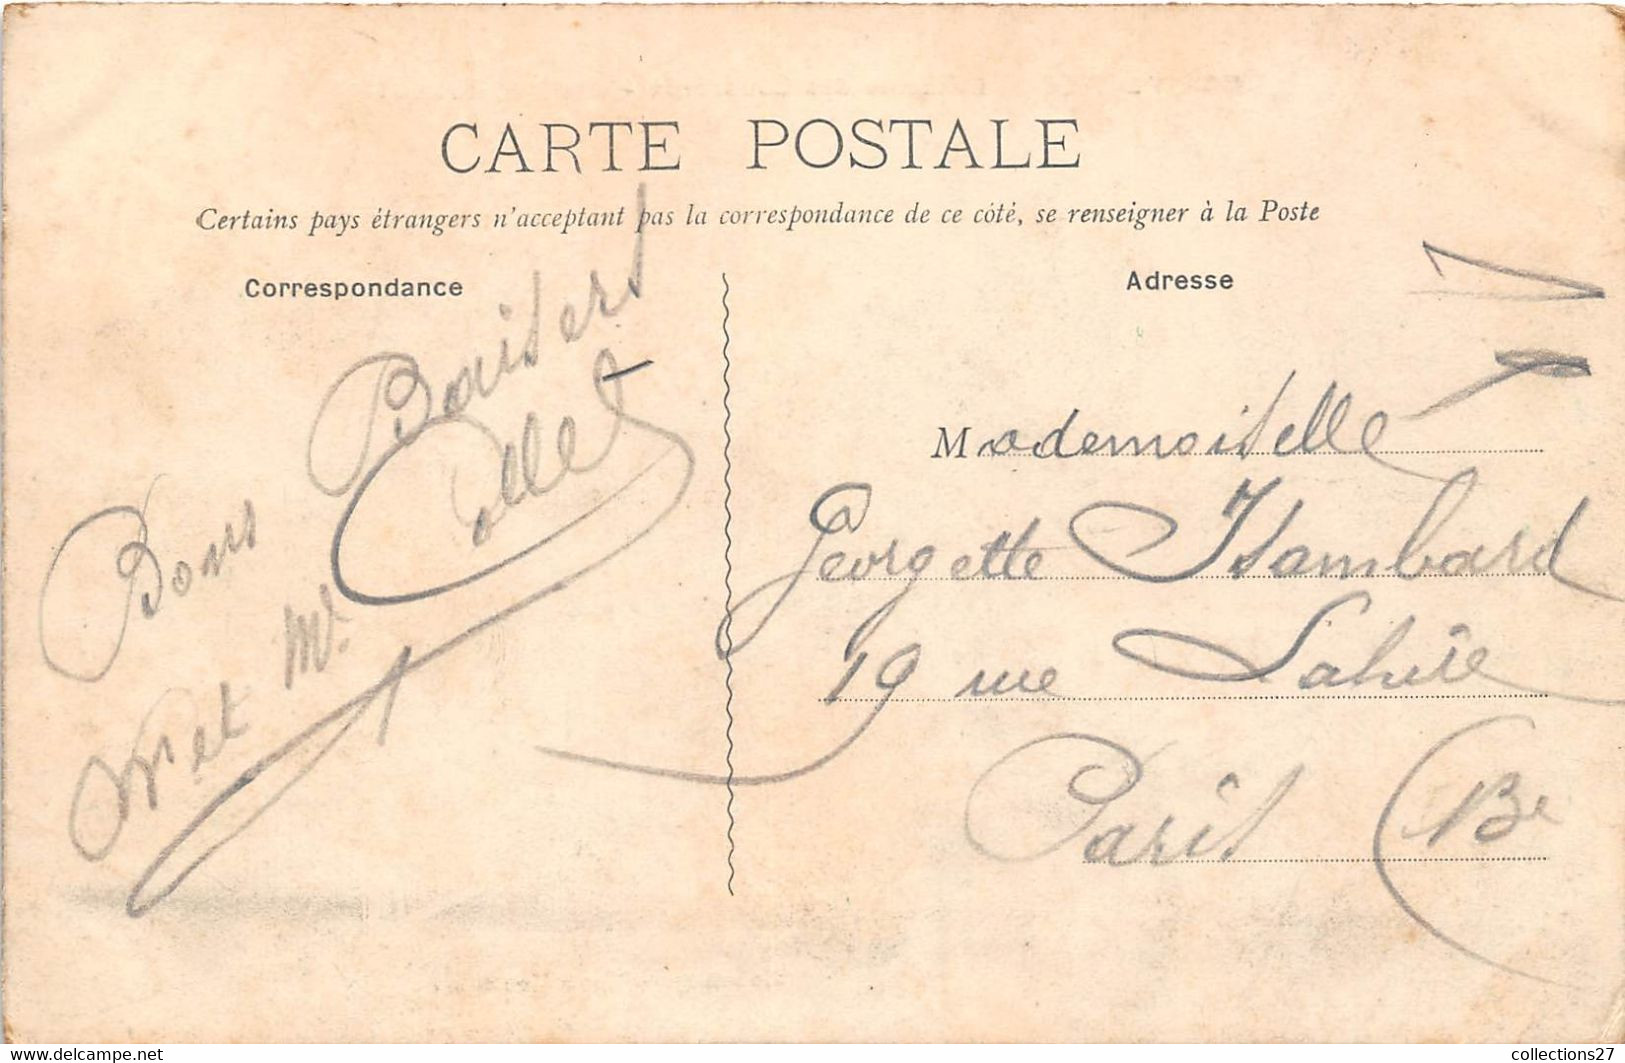 CARTE POSTALE
Certains pays étrangers n'acceptant pas la correspondance de ce côté, se renseigner à la Poste
Correspondance
Bons Baisers
et Mr Collet
Adresse
Mademoiselle
Georgette Isambard
19 rue Lahire
Paris (13e
www.delcampe.net
collections27